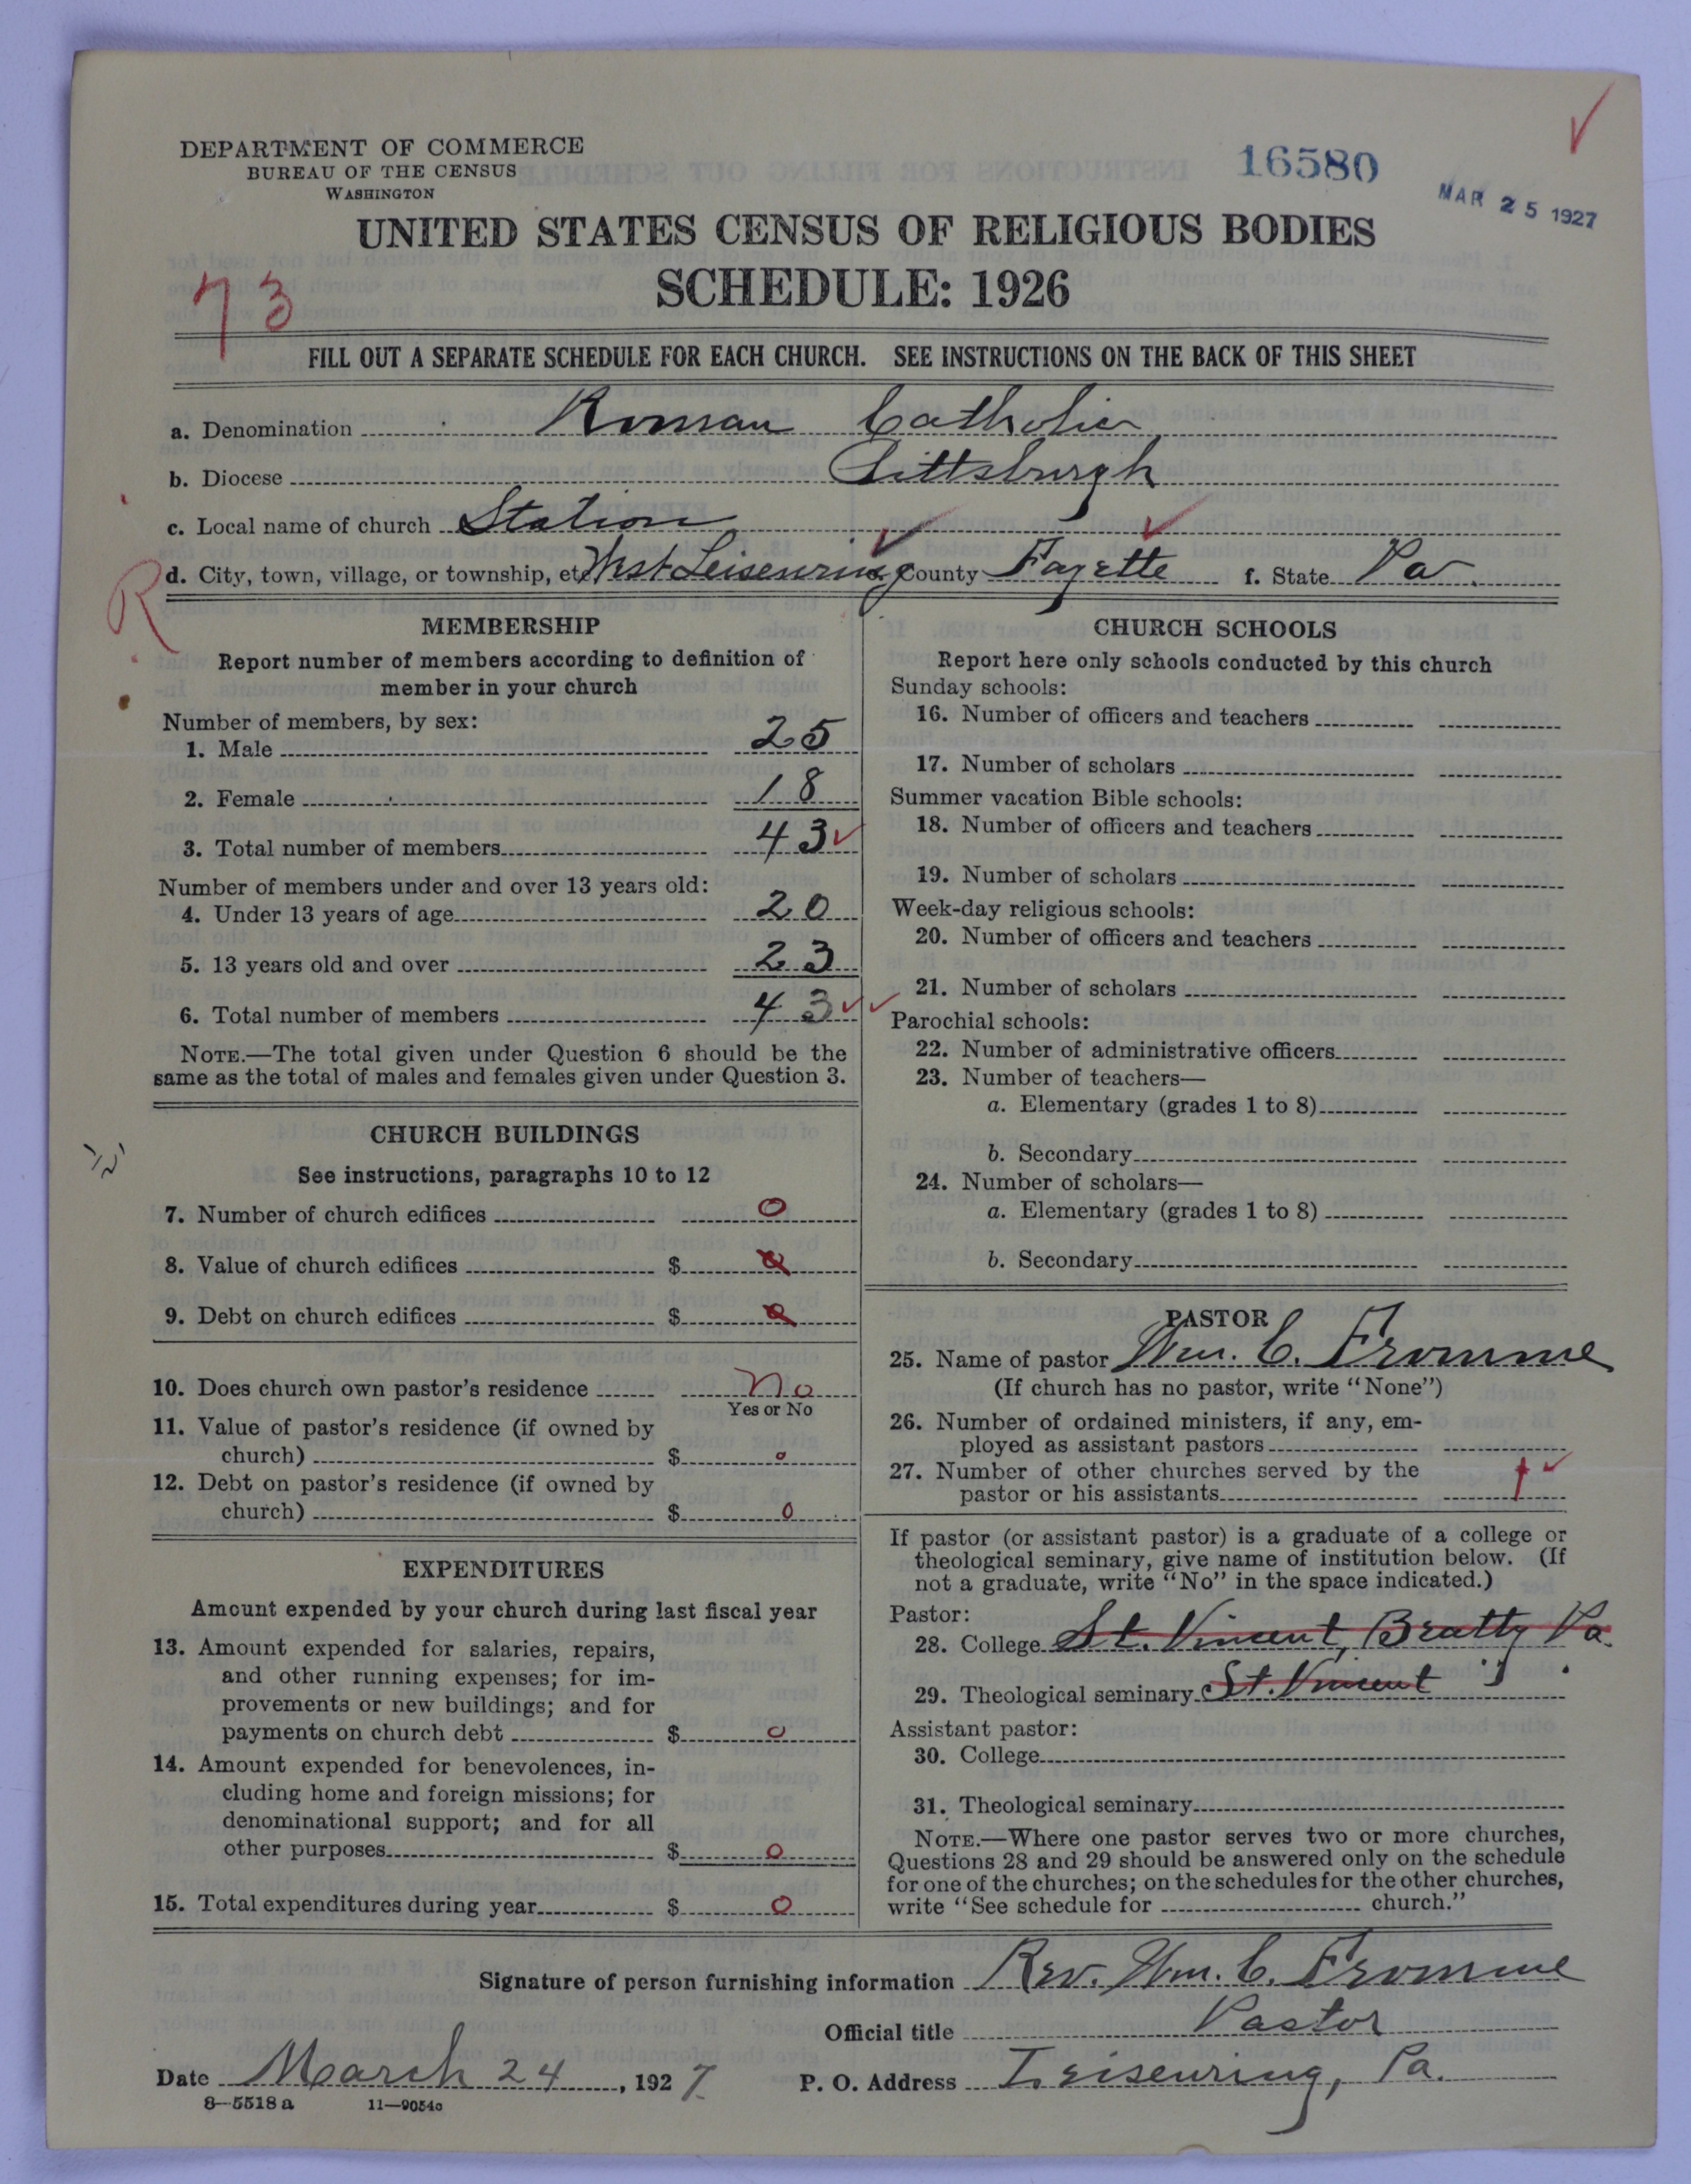 DEPARTMENT OF COMMERCE
BUREAU OF THE CENSUS
WASHINGTON
16580
MAR 25 1927
UNITED STATES CENSUS OF RELIGIOUS BODIES
SCHEDULE: 1926
73
FILL OUT A SEPARATE SCHEDULE FOR EACH CHURCH. SEE INSTRUCTIONS ON THE BACK OF THIS SHEET
a. Denomination Roman Catholic
b. Diocese Pittsburgh
c. Local name of church Station
R
d. City, town, village, or township, etc. West Leisenring e. County Fayette f. State Pa.
MEMBERSHIP
Report number of members according to definition of
member in your church
Number of members, by sex:
1. Male 25
2. Female 18
3. Total number of members 43
Number of members under and over 13 years old:
4. Under 13 years of age 20
5. 13 years old and over 23
6. Total number of members 43
NOTE.—The total given under Question 6 should be the
same as the total of males and females given under Question 3.
CHURCH BUILDINGS
See instructions, paragraphs 10 to 12
7. Number of church edifices 0
8. Value of church edifices $ 0
9. Debt on church edifices $ 0
10. Does church own pastor's residence No
Yes or No
11. Value of pastor's residence (if owned by
church) $ 0
12. Debt on pastor's residence (if owned by
church) $ 0
EXPENDITURES
Amount expended by your church during last fiscal year
13. Amount expended for salaries, repairs,
and other running expenses; for im-
provements or new buildings; and for
payments on church debt $ 0
14. Amount expended for benevolences, in-
cluding home and foreign missions; for
denominational support; and for all
other purposes $ 0
15. Total expenditures during year $ 0
CHURCH SCHOOLS
Report here only schools conducted by this church
Sunday schools:
16. Number of officers and teachers
17. Number of scholars
Summer vacation Bible schools:
18. Number of officers and teachers
19. Number of scholars
Week-day religious schools:
20. Number of officers and teachers
21. Number of scholars
Parochial schools:
22. Number of administrative officers
23. Number of teachers—
a. Elementary (grades 1 to 8)
b. Secondary
24. Number of scholars—
a. Elementary (grades 1 to 8)
b. Secondary
PASTOR
25. Name of pastor Wm. C. Fromme
(If church has no pastor, write "None")
26. Number of ordained ministers, if any, em-
ployed as assistant pastors
27. Number of other churches served by the
pastor or his assistants 1
If pastor (or assistant pastor) is a graduate of a college or
theological seminary, give name of institution below. (If
not a graduate, write "No" in the space indicated.)
Pastor:
28. College St. Vincent, Beatty Pa.
29. Theological seminary St. Vincent " .
Assistant pastor:
30. College
31. Theological seminary
NOTE.—Where one pastor serves two or more churches,
Questions 28 and 29 should be answered only on the schedule
for one of the churches; on the schedules for the other churches,
write "See schedule for church."
Signature of person furnishing information Rev. Wm. C. Fromme
Official title Pastor
Date March 24, 1927 P. O. Address Leisenring, Pa.
8—5518 a 11—9054c